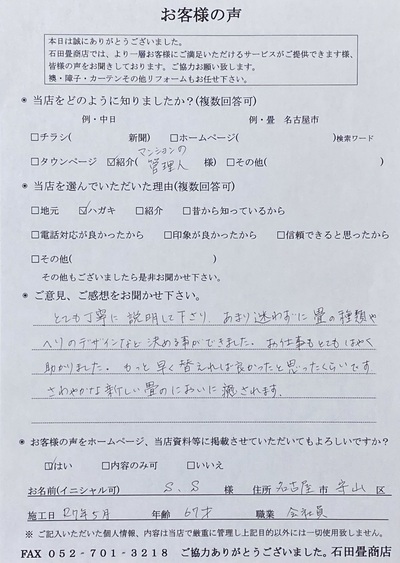 お客様の声
本日は誠にありがとうございました。
石田畳商店では、より一層お客様にご満足いただけるサービスがご提供できます様、
皆様の声をお聞きしております。ご協力お願い致します。
襖・障子・カーテンその他リフォームもお任せ下さい。
◉ 当店をどのように知りましたか？(複数回答可)
例・中日 例・畳 名古屋市
□チラシ( 新聞) □ホームページ( )検索ワード
□タウンページ ☑紹介( マンションの管理人 様) □その他( )
◉ 当店を選んでいただいた理由(複数回答可)
□地元 ☑ハガキ □紹介 □昔から知っているから
□電話対応が良かったから □印象が良かったから □信頼できると思ったから
□その他( )
その他もございましたら是非お聞かせ下さい。
◉ ご意見、ご感想をお聞かせ下さい。
とても丁寧に説明して下さり、あまり迷わずに畳の種類や
ヘリのデザインなど決める事ができました。お仕事もとてもはやく
助かりました。もっと早く替えれば良かったと思ったくらいです
さわやかな新しい畳のにおいに癒されます。
◉ お客様の声をホームページ、当店資料等に掲載させていただいてもよろしいですか？
☑はい □内容のみ可 □いいえ
お名前(イニシャル可) S.S 様 住所 名古屋 市 守山 区
施工日 R7年5月 年齢 67才 職業 会社員
※ ご記入いただいた個人情報、内容は当店で厳重に管理し上記目的以外には一切使用致しません。
FAX 052-701-3218 ご協力ありがとうございました。石田畳商店